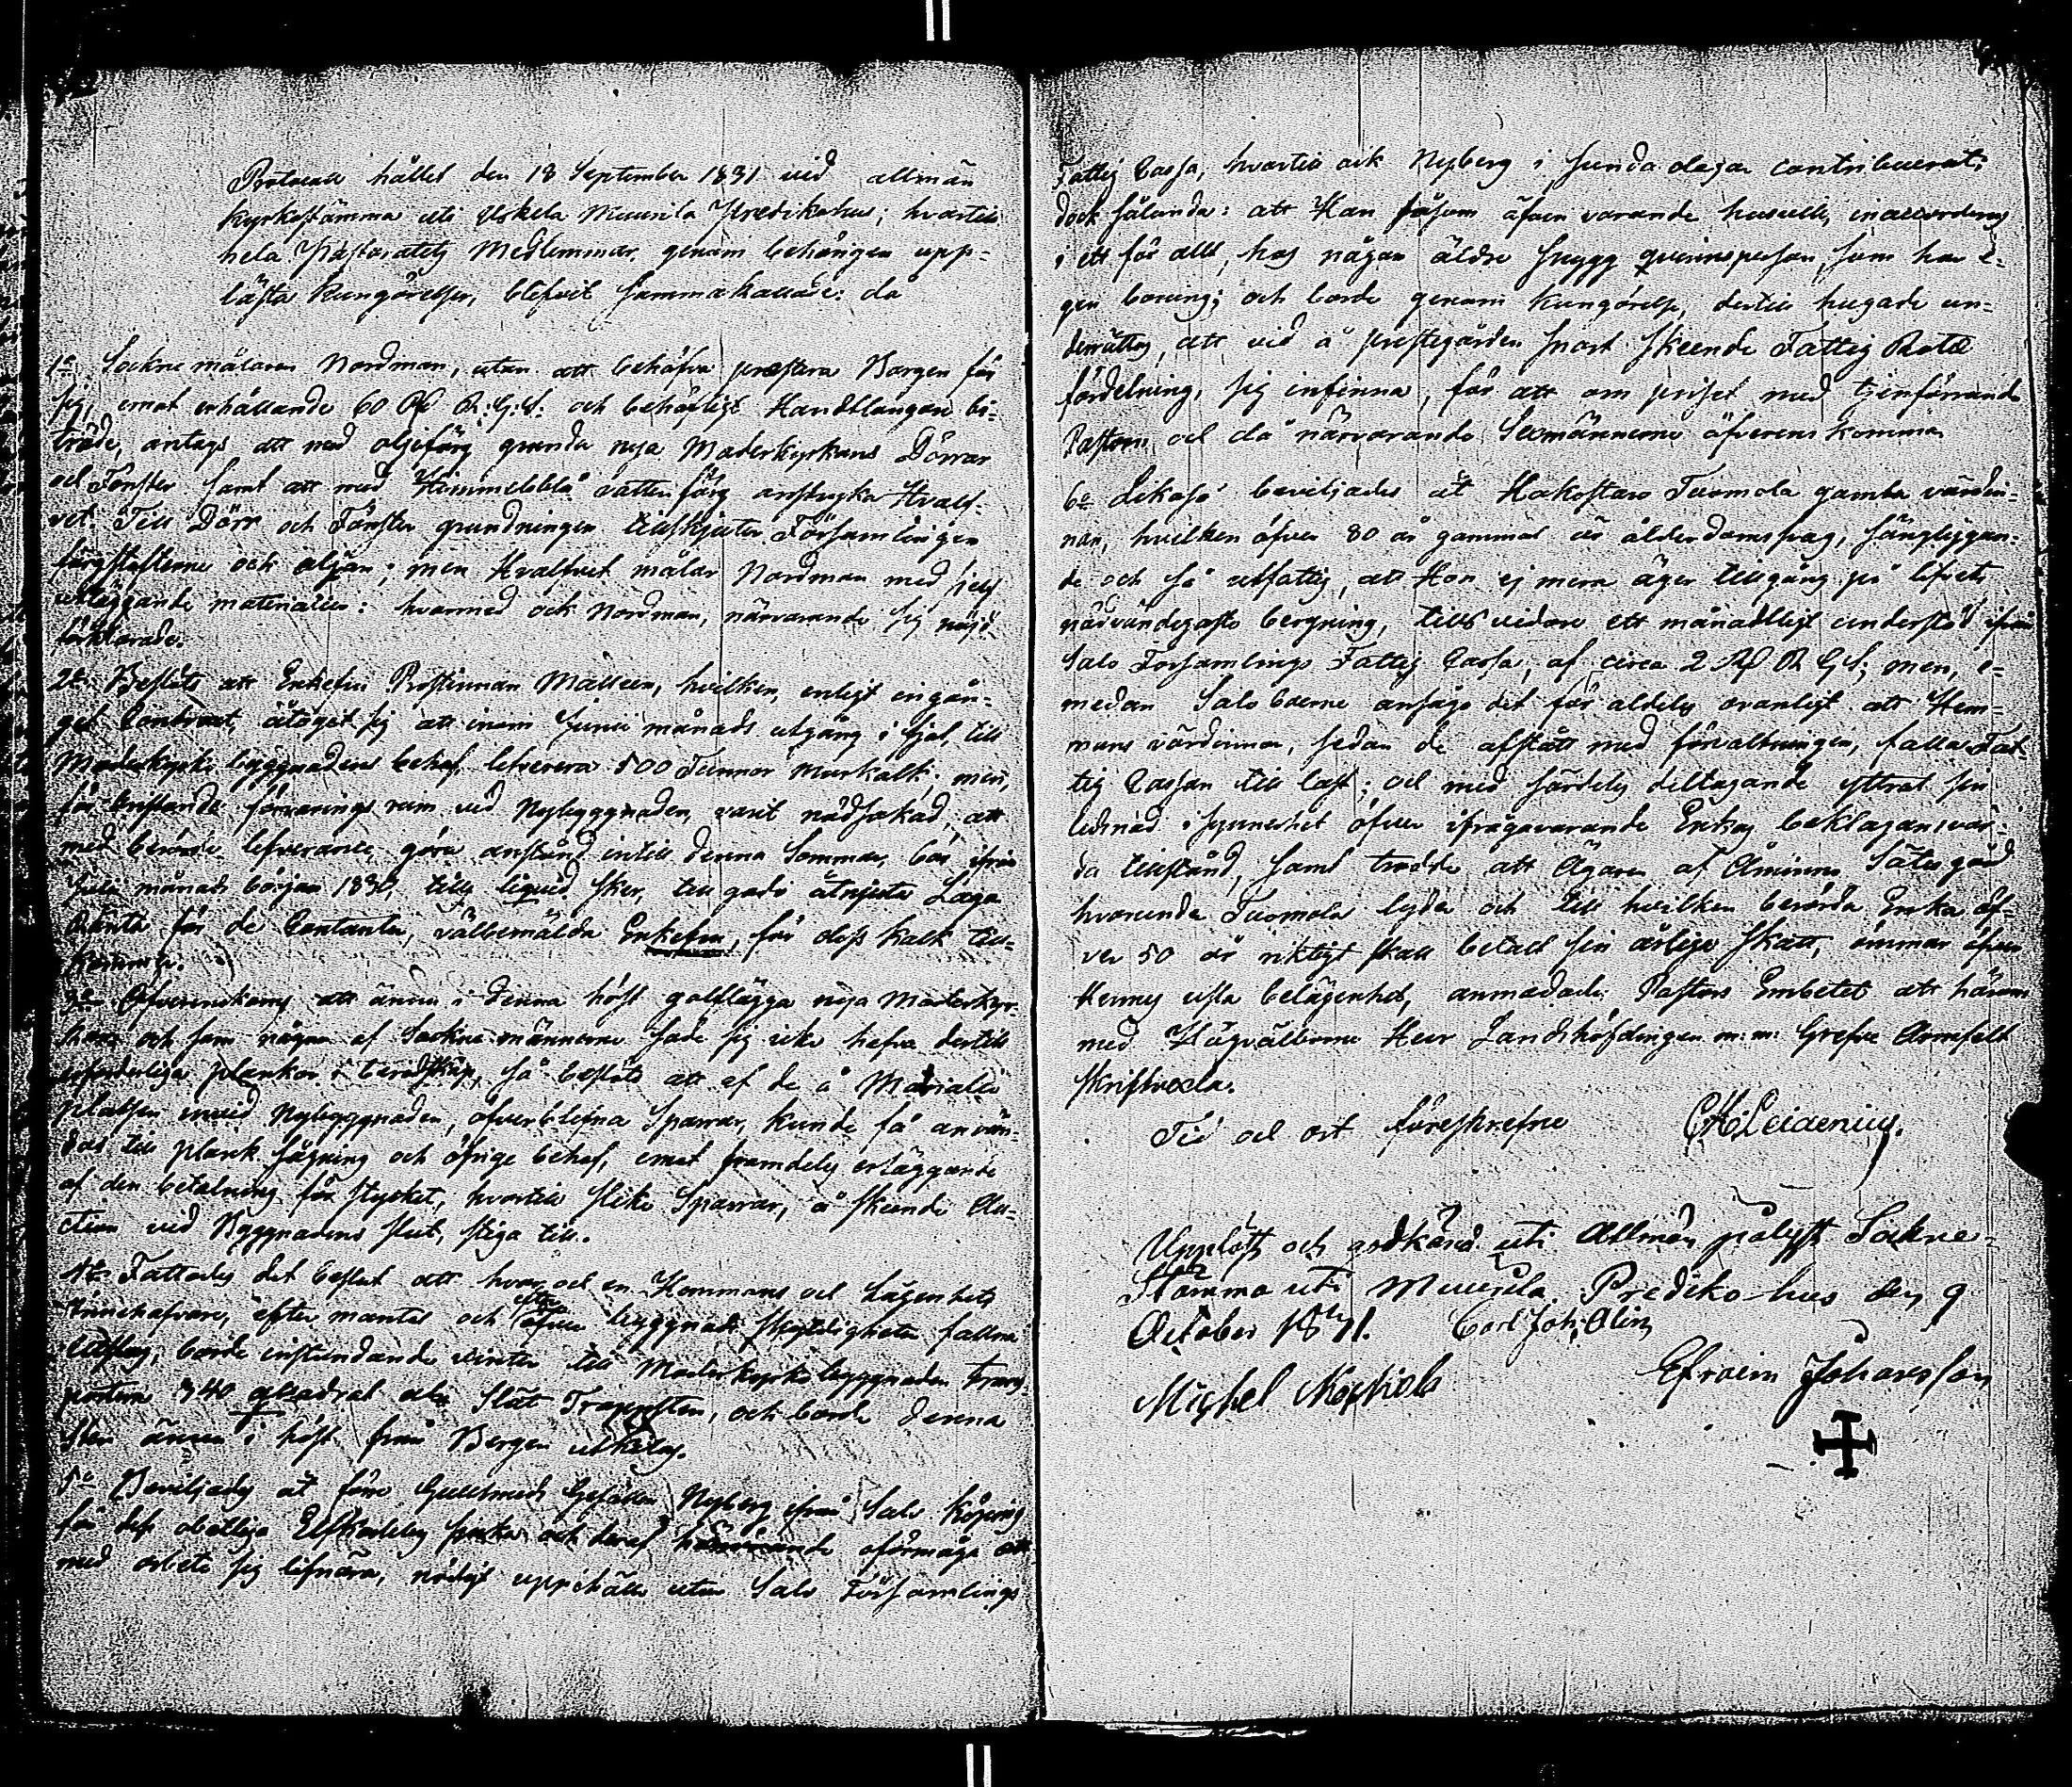 Protocoll hållet den 18 September 1831 vid allmän
Kyrkostämma uti Uskela Muurila Predikohus; hvartill
hela Pastoratets Medlemmar, genom behörigen upp-
läste Kungörelser, blifvit sammakallade: då
1o Sockne målaren Nordman, utan att behöfva præstera Borgen för
sig, emot erhållande 60 Rd R:G:S: och behörligt Handtlangare bi-
träde, antags att med oljefärg grunda nya Moderkyrkans Dörrar
och Fönster samt att med Himmelsblå vattenfärg anstryka Hvalf-
vet. Till Dörr och Fönster grundningen tillskjuter Församlingen
färgstofterne och oljan; men Hvalfvet målar Nordman med sjelf
utläggande materialier: hvarmed ock Nordman, närvarande sig nöjd
förklarade.
2o Beslöts att Enkefru Prostinnan Malleen, hvilken, enligt ingån-
get Contract, åtagit sig att inom Junii månads utgång i fjol, till
Moderkyrko byggnadens behof, lefverera 500 Tunnor Murkalk; men,
för bristande förvarings rum vid Nybyggnaden, varit nödsakad, att
med berörde lefverance göra anstånd intill denna Sommar, bör ifrån
Julii månads början 1830, tills liquid sker, till godo åtnjuta Laga
Ränta för de Contanter, välbemälda Enkefru, för dess kalk till-
komma.
3o Öfverenskoms att ännu i denna höst golflägga nya Moderkyr-
kan och som någon af Sockne männerne sade sig icke hafva dertill
erforderliga plankor i beredskap, så beslöts att af de å Material
platsen invid Nybyggnaden, öfverblefna Sparrar, kunde få använ-
das till plank sågning och öfrige behof, emot framdeles erläggande
af den betalning för stycket, hvartill slike Sparrar, å skeende Au-
ction vid Byggnadens slut, stiga till.
4o Fattades det beslut att hvar och en Hemmans och Lägenhets
Innehafvare, efter mantal och efter öfver byggnads skyldigheten fallna
utslag, borde instundande vinter till Moderkyrko byggnaden trans-
portera 340 quadrat alnar Slät Trappsten, och borde denna
Sten ännu i höst från Bergen utkilas.
5o Beviljades åt förre Guldsmeds Gesällen Nyberg ifrån Salo Köping
för dess obotliga sjuka och deraf härrörande oförmåga att
med arbete sig lifnära, nödigt uppehälle utur Salo Församlings
Fattig Cassa, hvartill ock Nyberg i sunda dagar contribuerat;
dock sålunda: att Han såsom äfven varande husvill, inaccorderas
i ett för allt, hos någon äldre snygg qvinnsperson, som har e-
gen boning; och borde genom Kungörelse, dertill hugade un-
derrättas, att vid å prestegården snart skeende Fattig Rote
fördelning, sig infinna, för att om priset med tjenstförrande
Pastorn och då närvarande Sexmännerne öfverens komma.
6o Likaså beviljades åt Hakostaro Tuomola gamla värdin-
nan, hvilken öfver 80 år gammal är ålderdomssvag, sängliggan-
de och så utfattig, att Hon ej mera äger tillgång på lifvets
nödvändigaste bergning, tills vidare ett månadtligt understöd ifrån
Salo Församlings Fattig Cassa, af circa 2 Rd R G S; men, e-
medan Salo boerne ansågo det för aldeles ovanligt att Hem-
mans värdinnor, sedan de afstått med förvaltningen, falla Fat-
tig Cassan till last; och med särdeles deltagande yttrat sin
ledsnad i synnerhet öfver ifrågavarande Enkas beklagansvär-
da tillstånd, samt trodde att Ägaren af Åminne Sätesgård
hvarunder Tuomola lyder och till hvilken berörda Enka öf-
ver 50 år riktigt skall betalt sin årliga skatt, ömmar öfver
Hennes usla belägenhet, anmodade Pastors Embetet att härom
med Högvälborne Herr Landshöfdingen m: m: Grefve Armfelt
skriftvexla.
Tid och ort föreskrefne
Uppläst och godkänd uti Allmän pålyst Sockne-
Stämma uti Muurila Prediko-hus den 9
October 1831. Carl Joh: Olin
Michel
Efraim Johansson